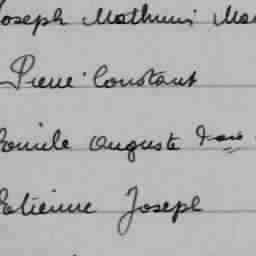 Joseph Mathurin Ma
Pierre Constant
Camile Auguste
Etienne Joseph